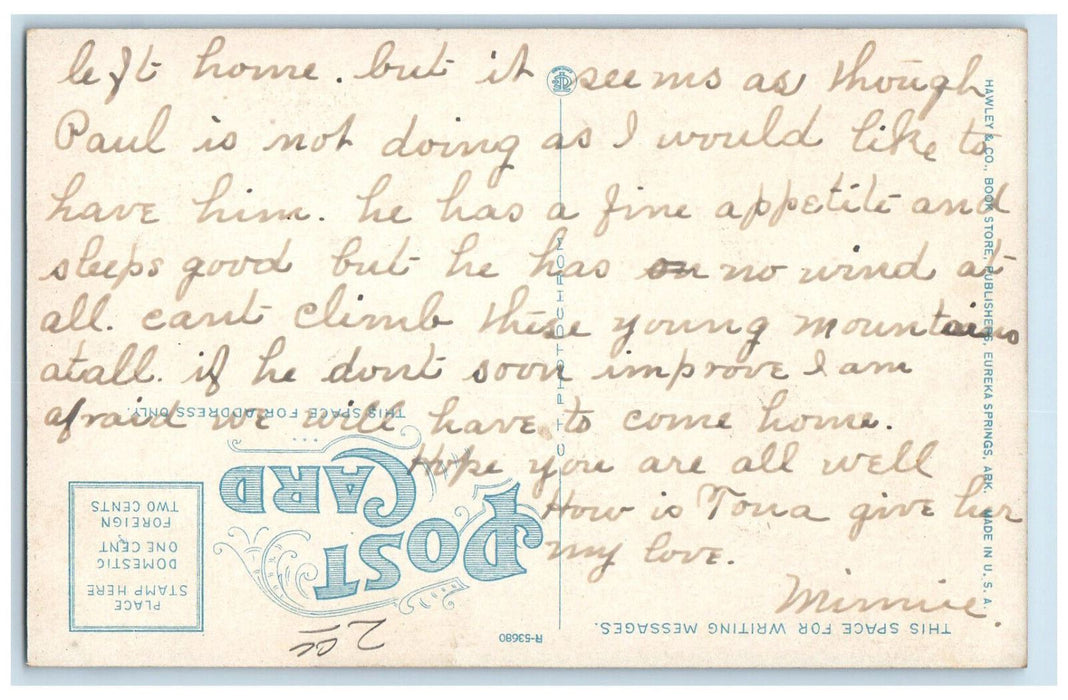 left home. but it seems as though
Paul is not doing as I would like to
have him. he has a fine appetite and
sleeps good but he has no wind at
all. cant climb these young mountains
atall. if he dont soon improve I am
afraid we will have to come home.
Hope you are all well
How is Tona give her
my love.
Minnie.
THIS SPACE FOR WRITING MESSAGES.
THIS SPACE FOR ADDRESS ONLY.
POST
CARD
PLACE
STAMP HERE
DOMESTIC
ONE CENT
FOREIGN
TWO CENTS
R-53680
C T PHOTOCHROM
HAWLEY & CO., BOOK STORE, PUBLISHERS, EUREKA SPRINGS, ARK. MADE IN U. S. A.